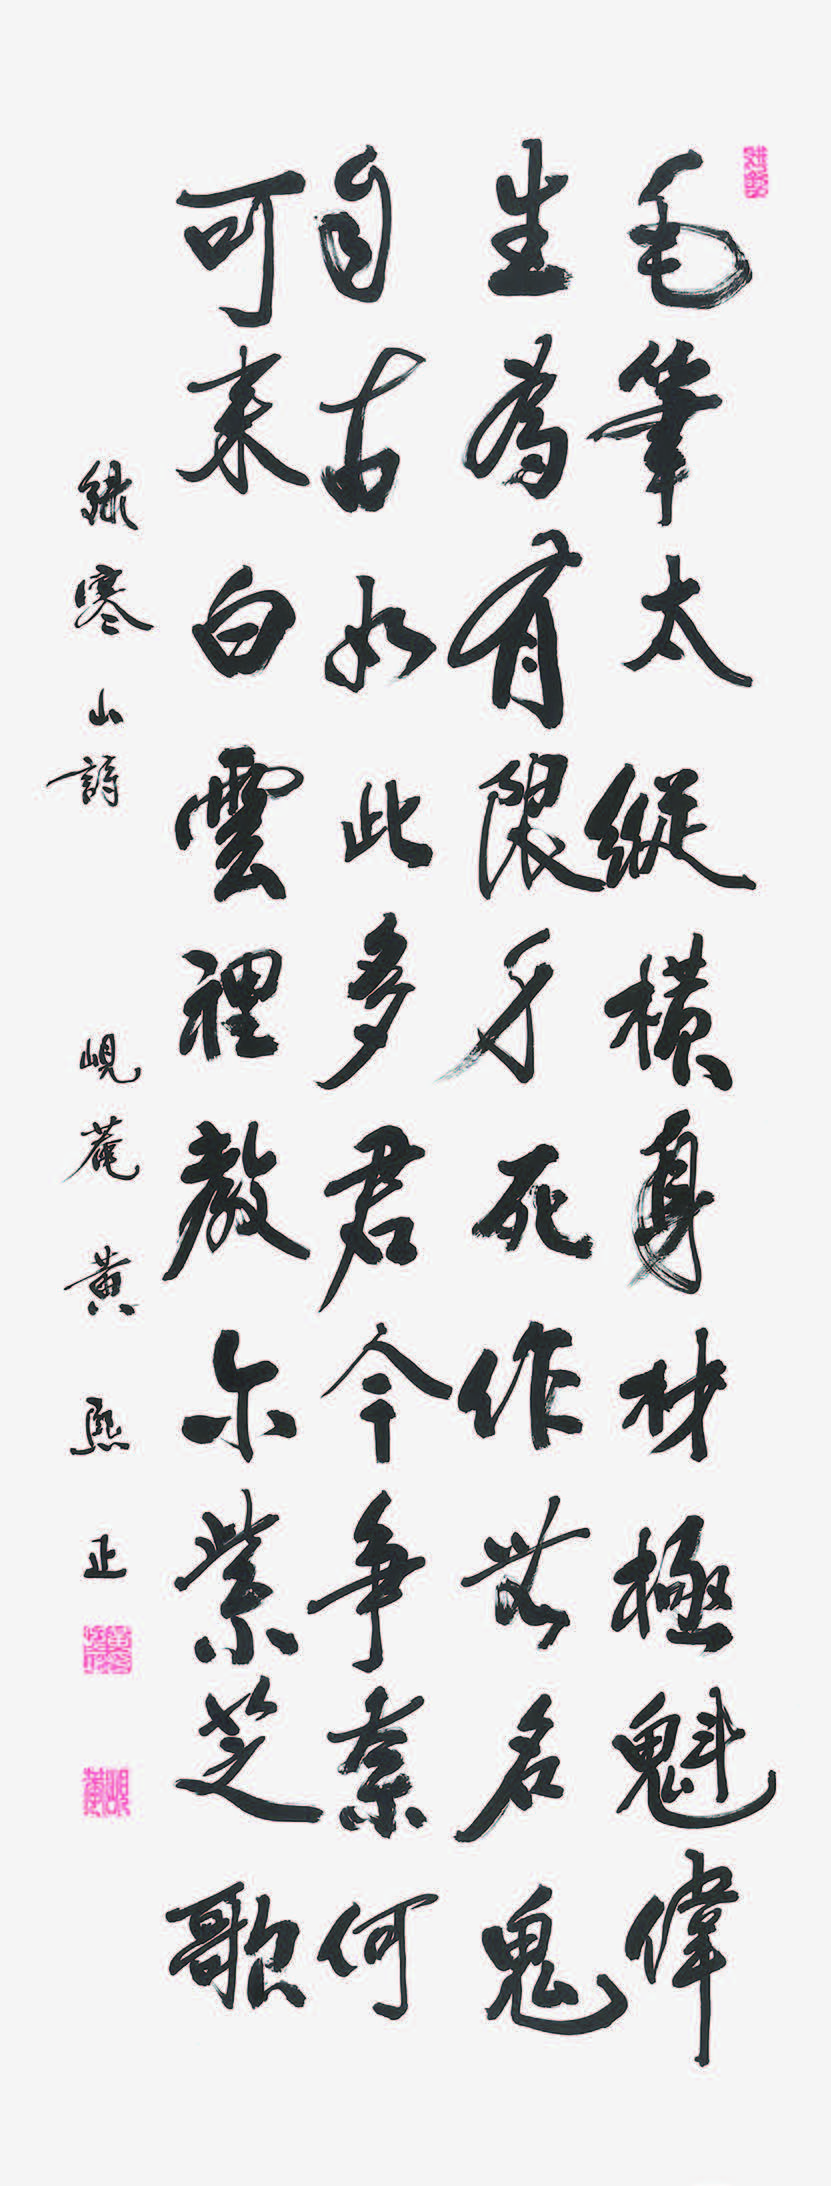 毛筆太縱橫身材極魁偉
生為有限身死作無名鬼
自古如此多君今爭奈何
可来白雲裡教尔紫芝歌
錄寒山詩 峴菴 黃熙正